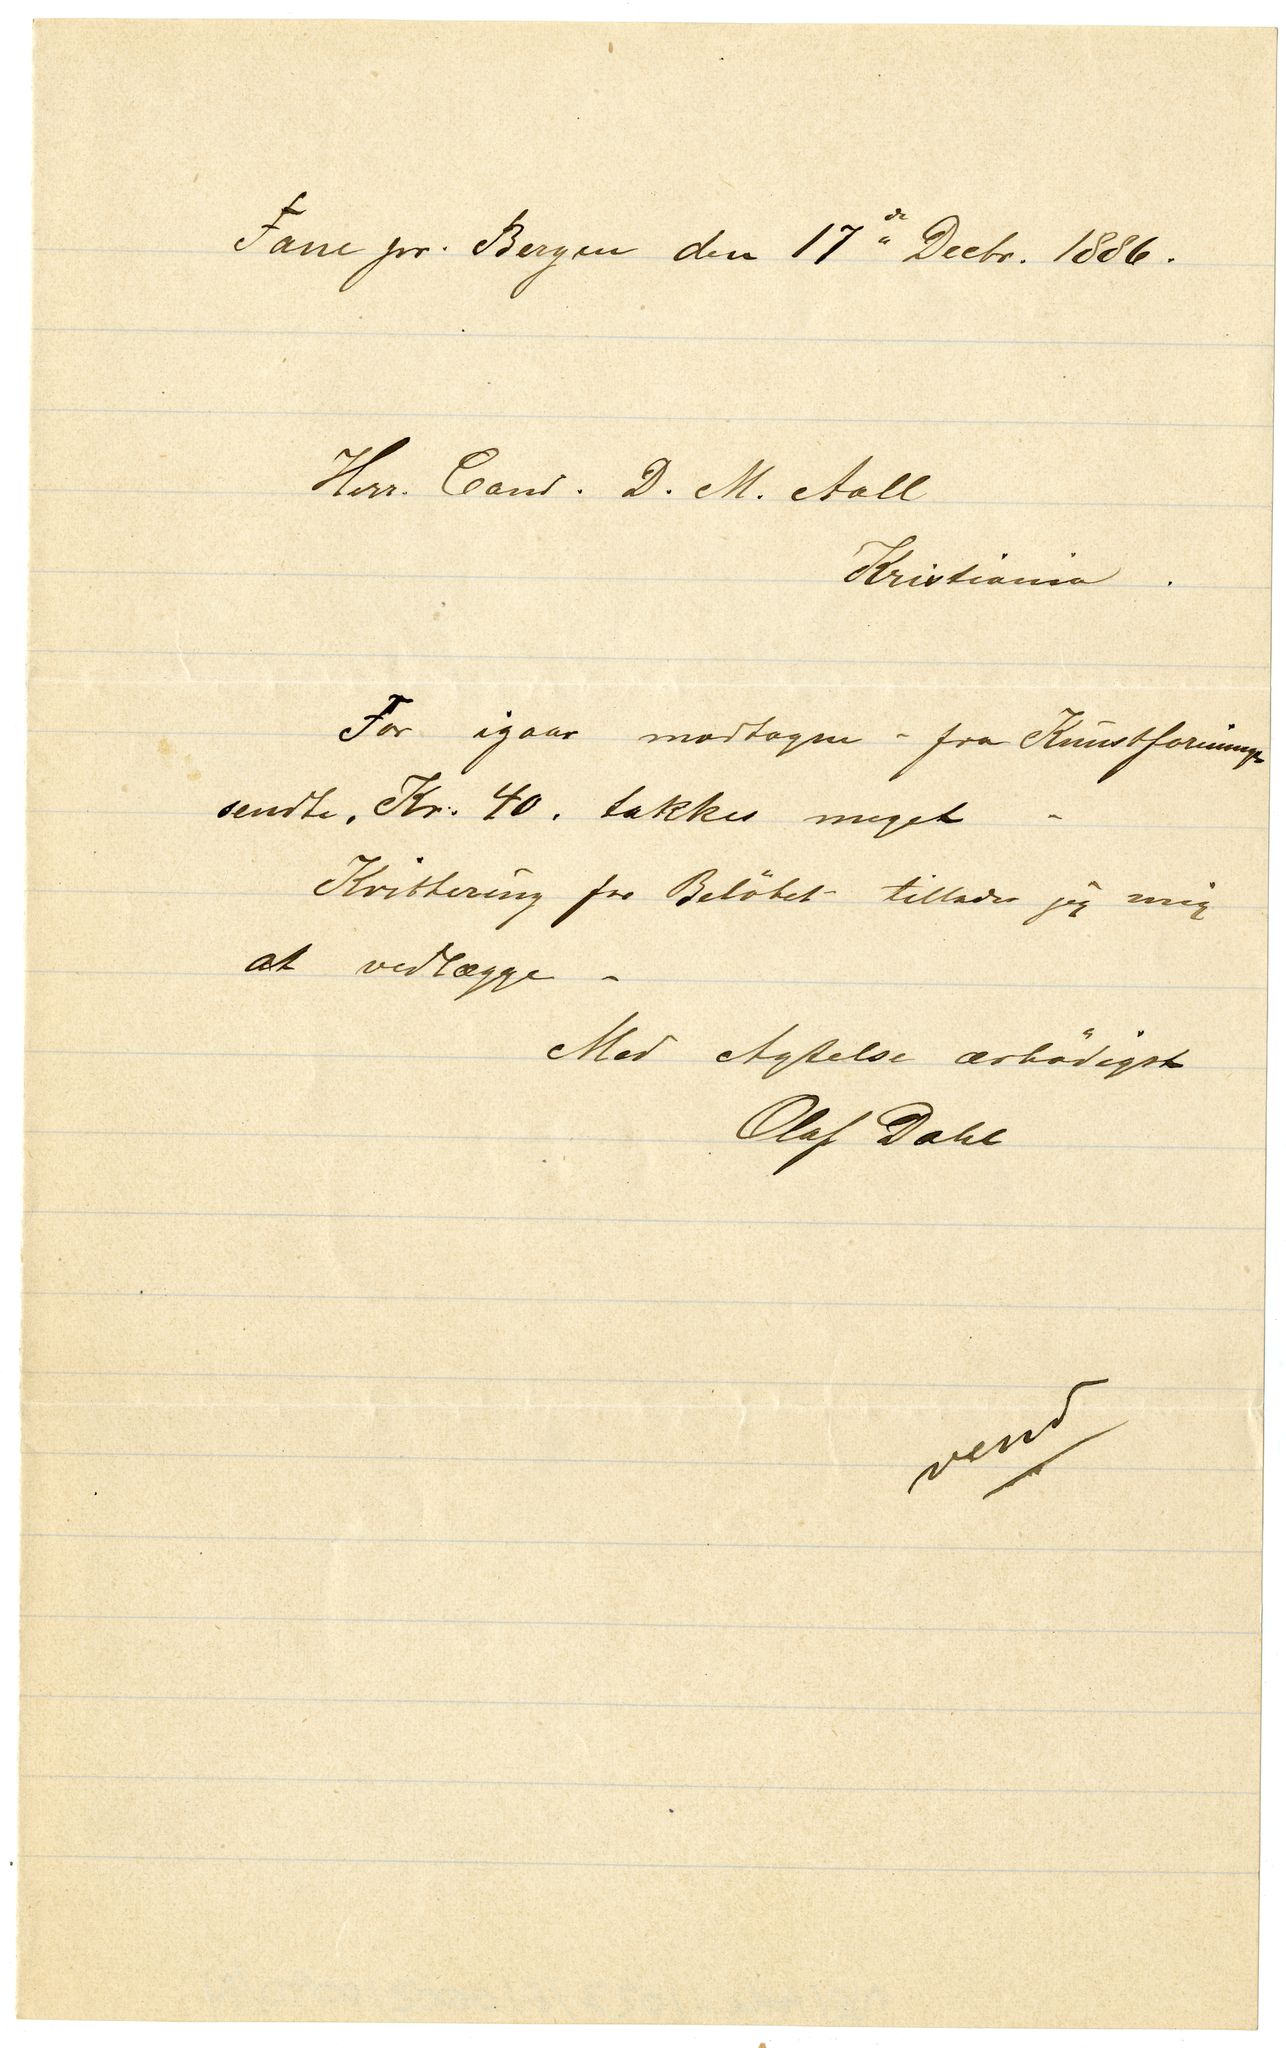 Fane pr. Bergen den 17de Decbr. 1886.
Herr. Cand. D. M. Aall
Kristiania.
For igaar modtagne - fra Kunstforeningen
sendte, Kr. 40. takkes meget -
Kvittering for Beløbet tillader jeg mig
at vedlægge -
Med Agtelse ærbödigst
Olaf Dahl
vend